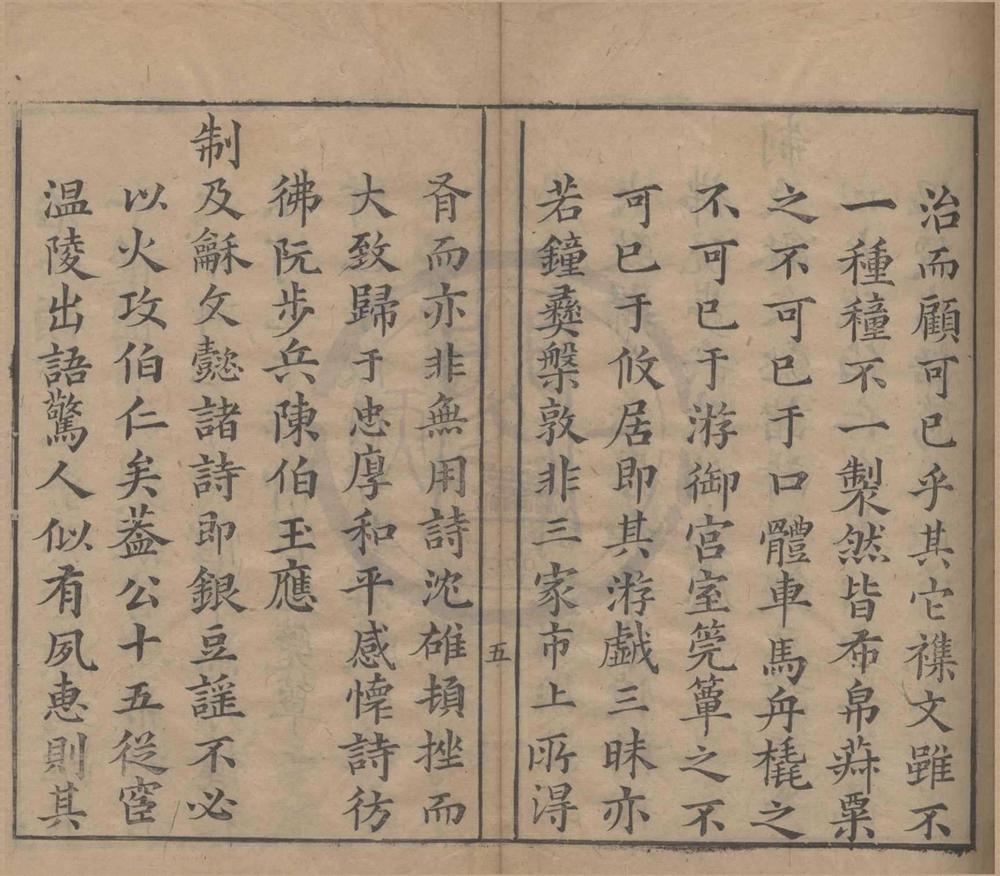 治而顧可已乎其它襍文雖不
一種種不一製然皆布帛菽粟
之不可已于口體車馬舟橇之
不可已于游御宮室筦簟之不
可已于攸居即其游戲三昧亦
若鐘彝槃敦非三家市上所得
五
胥而亦非無用詩沈雄頓挫而
大致歸于忠厚和平感懷詩彷
彿阮步兵陳伯玉應
制及龢文懿諸詩即銀豆謡不必
以火攻伯仁矣葢公十五從宦
温陵出語驚人似有夙惠則其